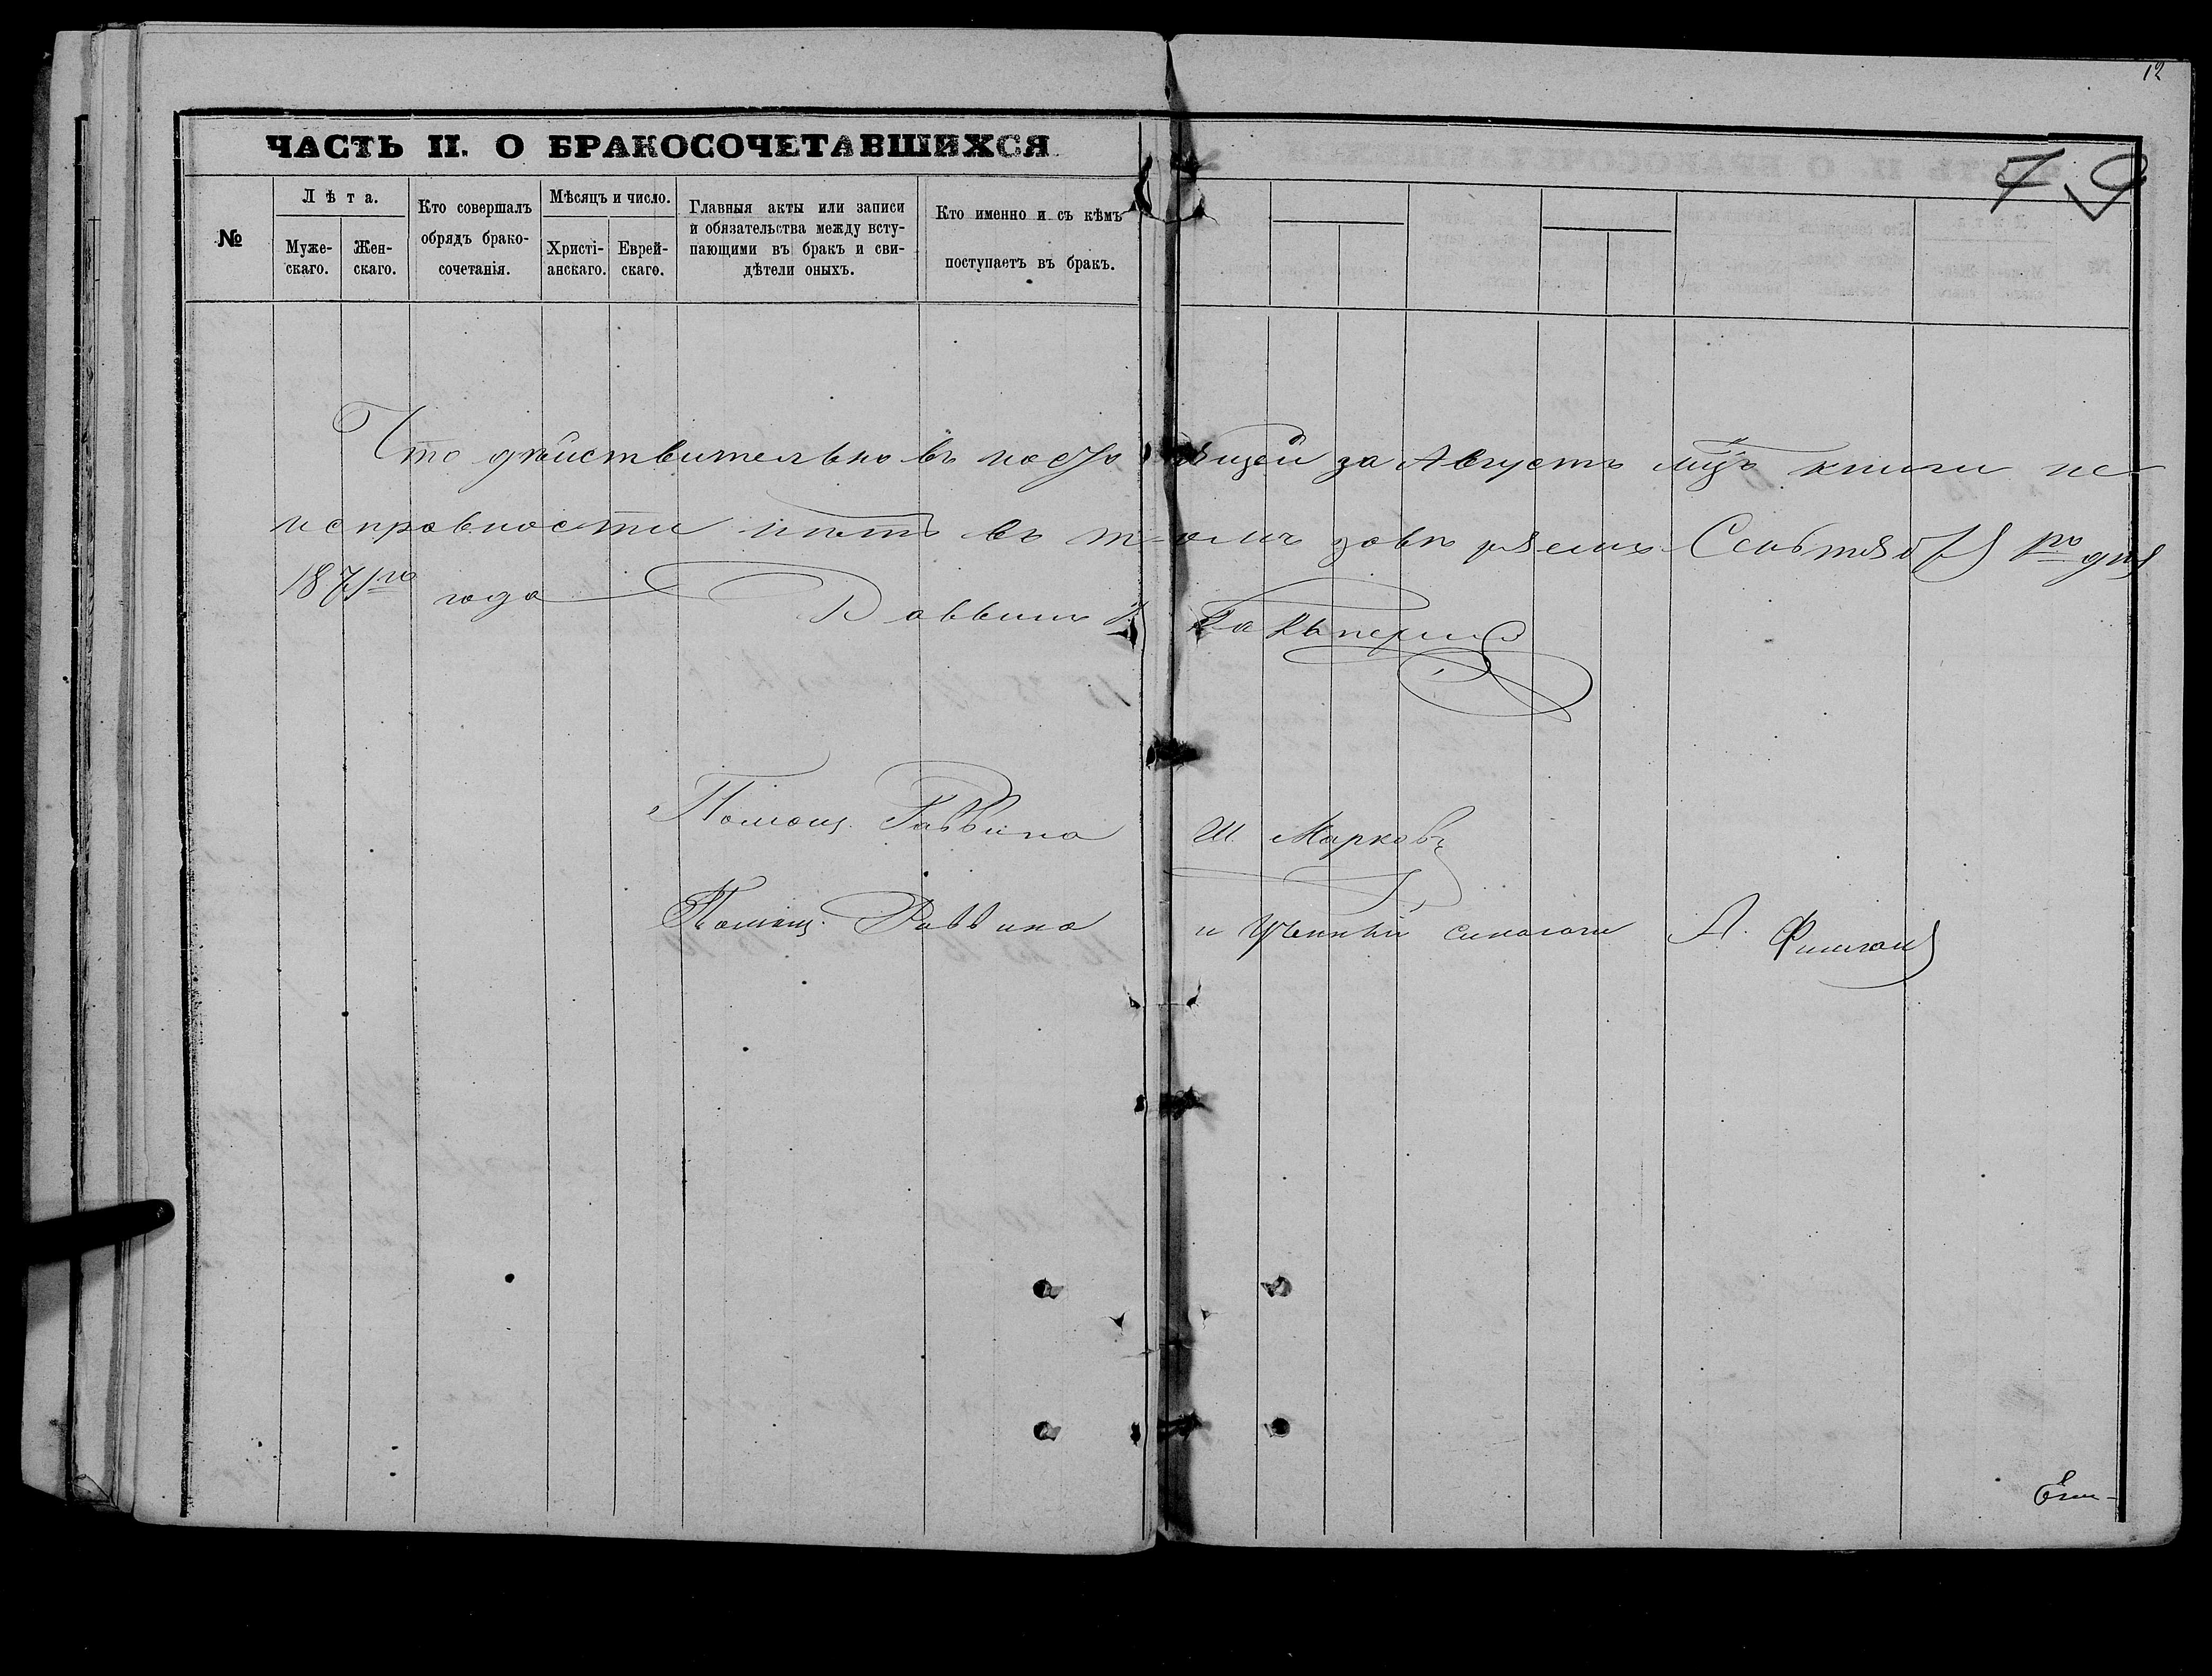 12
ЧАСТЬ II. О БРАКОСОЧЕТАВШИХСЯ
79
№
Лѣта.
Муже-
скаго.
Жен-
скаго.
Кто совершалъ
обрядъ брако-
сочетанія.
Мѣсяцъ и число.
Христі-
анскаго.
Еврей-
скаго.
Главныя акты или записи
и обязательства между всту-
пающими въ бракъ и сви-
дѣтели оныхъ.
Кто именно и съ кѣмъ
поступаетъ въ бракъ.
Что дѣйствительно въ настоящей за Августъ мцъ книги не
исправности нѣтъ въ томъ завѣряемъ Сентября 1го дня
1871го года Раввинъ
Помощ. Раввина Ш. Марковъ
Помощ. Раввина и Ученный синагоги А.